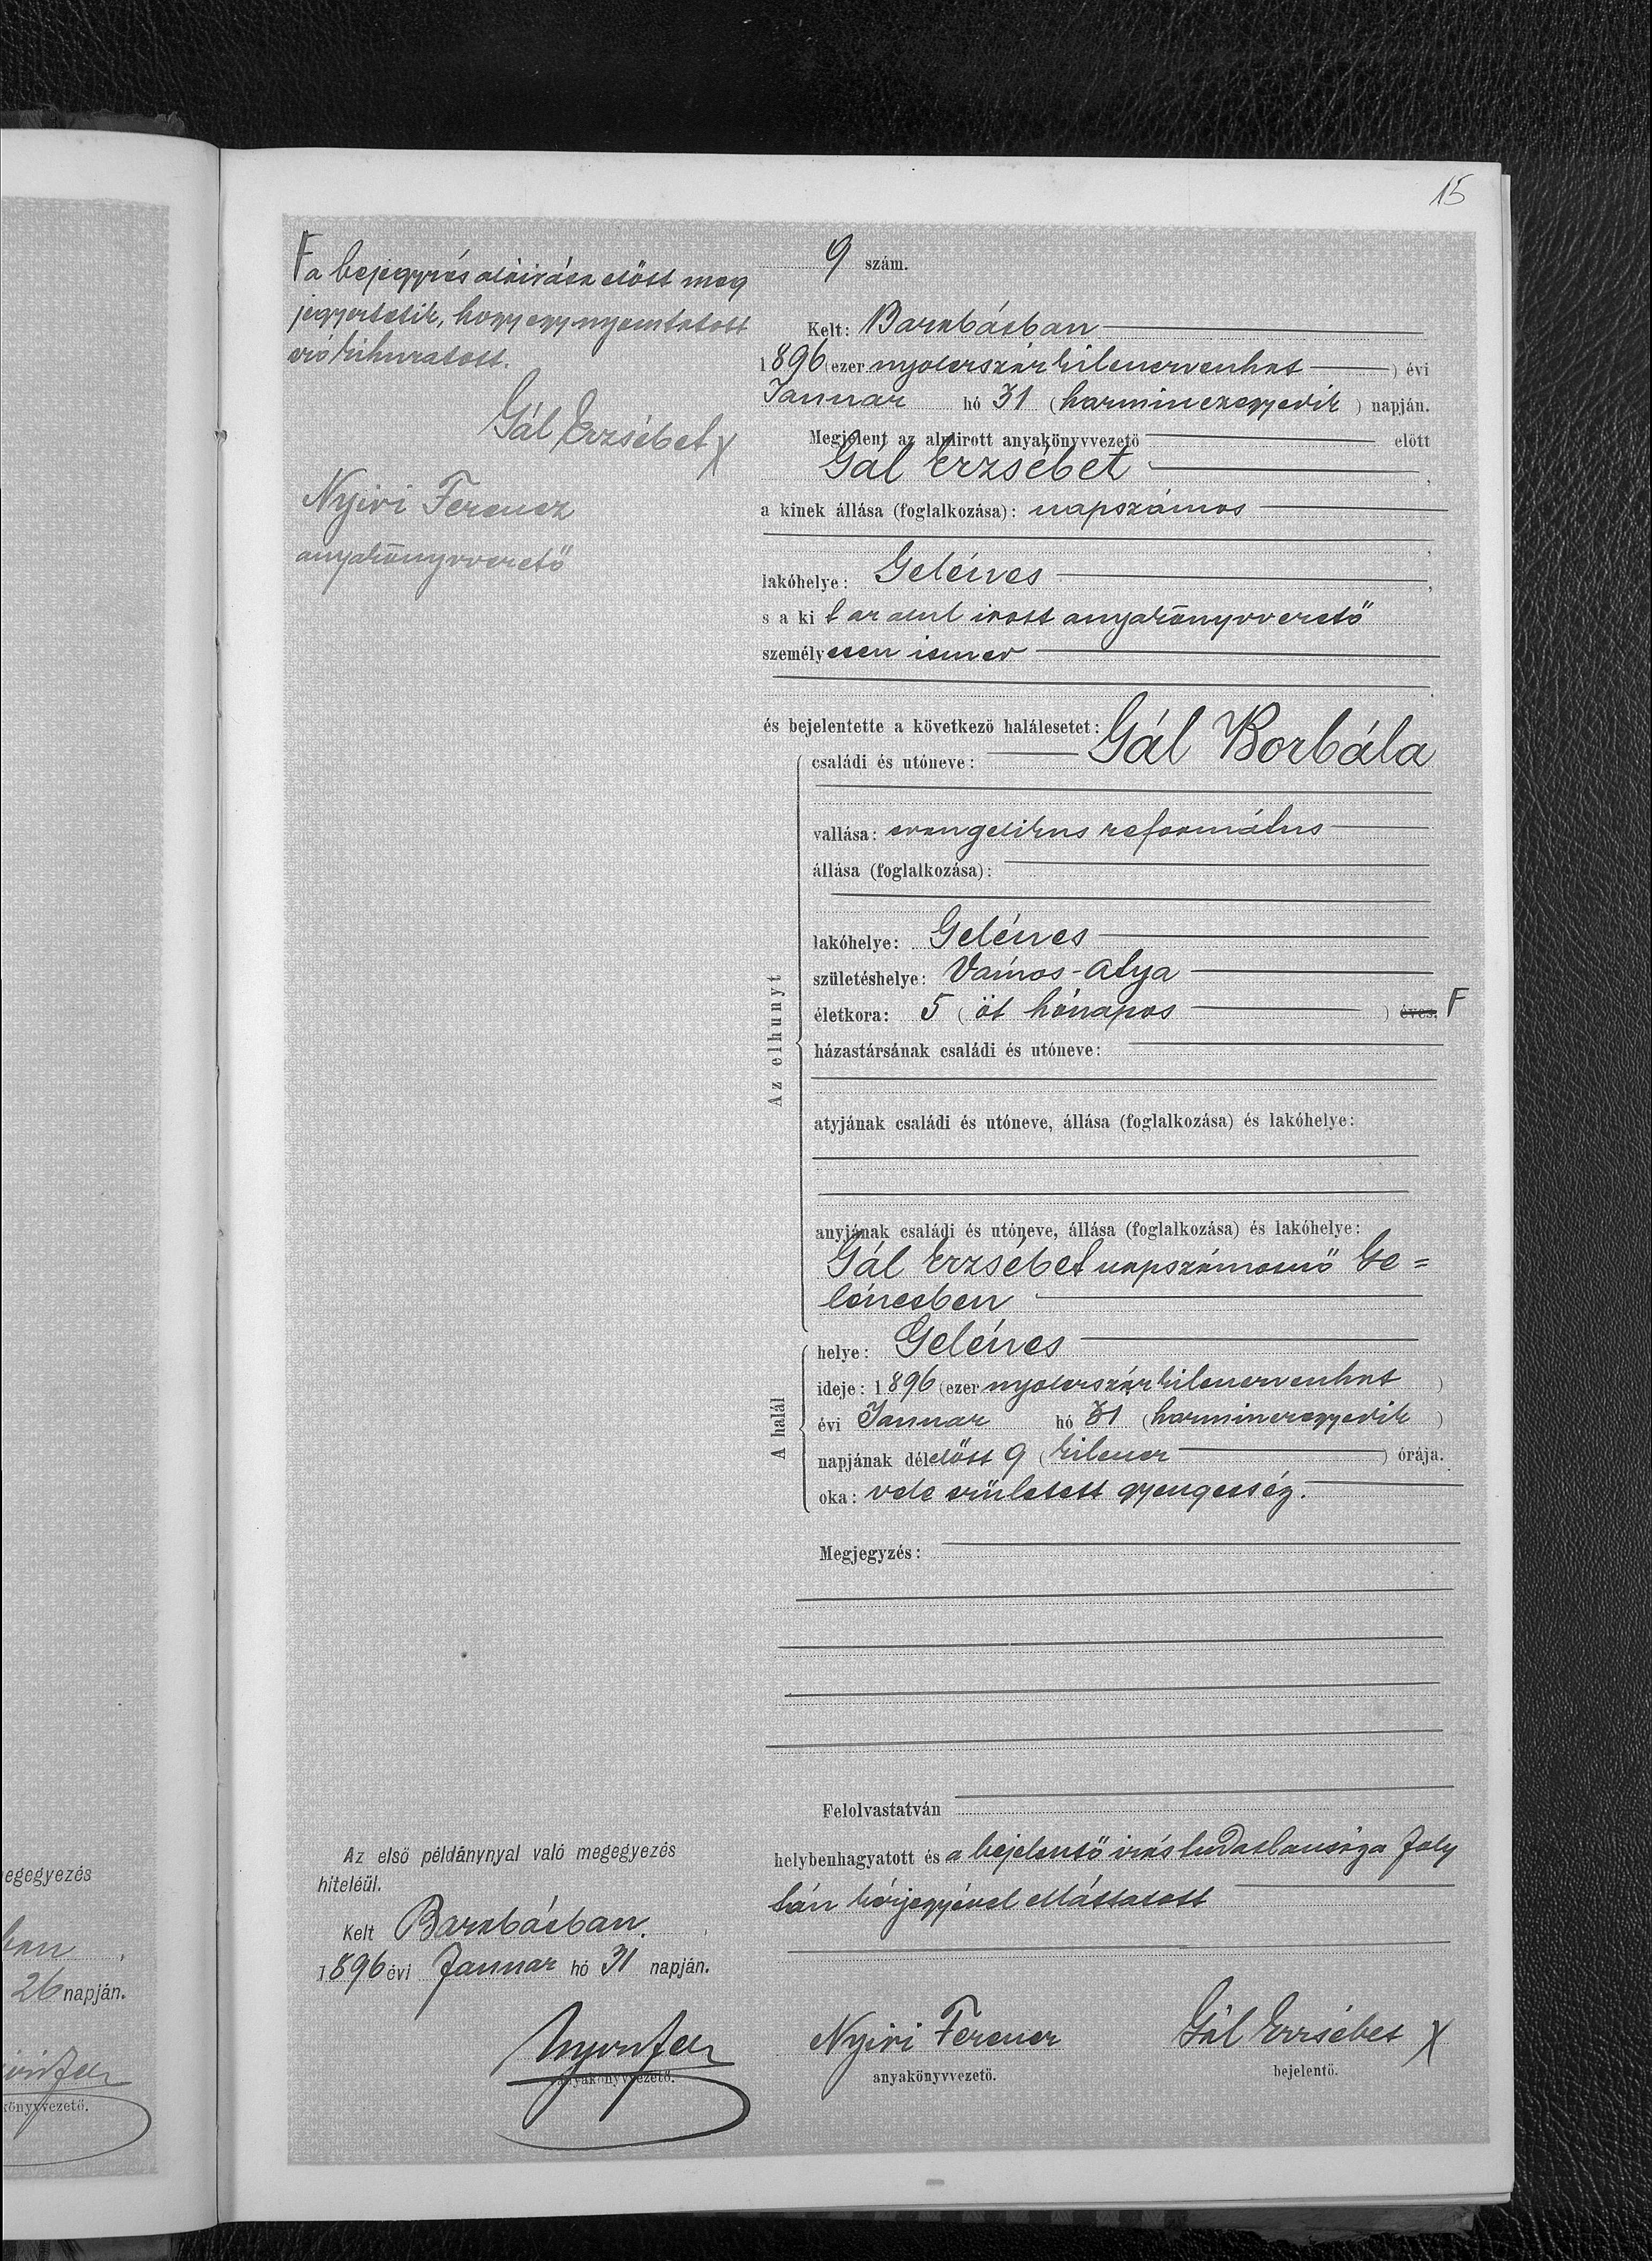 15
F a bejegyzés aláirása előtt meg
jegyeztetik, hogy egy nyomtatott
szó kihuzatott.
Gál Erzsébet X
Nyiri Ferencz
anyakönyvvezető
9 szám.
Kelt: Barabásban
1896 (ezer nyolczszázkilenczvenhat) évi
Januar hó 31 (harminczegyedik) napján.
Megjelent az alulirott anyakönyvvezető előtt
Gál Erzsébet,
a kinek állása (foglalkozása): napszámos
lakóhelye: Gelénes,
s a ki t az alul irott anyakönyvvezető
személyesen ismer
és bejelentette a következő halálesetet:
Az elhunyt
családi és utóneve: Gál Borbála
vallása: evangelikus református
állása (foglalkozása):
lakóhelye: Gelénes
születéshelye: Vámos-Atya
életkora: 5 (öt hónapos) éves. F
házastársának családi és utóneve:
atyjának családi és utóneve, állása (foglalkozása) és lakóhelye:
anyjának családi és utóneve, állása (foglalkozása) és lakóhelye:
Gál Erzsébet napszámosnő Ge=
lénesben
A halál
helye: Gelénes
ideje: 1896 (ezer nyolczszázkilenczvenhat)
évi Januar hó 31 (harminczegyedik)
napjának délelőtt 9 (kilencz) órája.
oka: vele született gyengeség.
Megjegyzés:
Felolvastatván
helybenhagyatott és a bejelentő irástudatlansága foly
tán kézjegyével elláttatott
Nyiri Ferencz
anyakönyvvezető.
Gál Erzsébet X
bejelentő.
Az első példánynyal való megegyezés
hiteléül.
Kelt Barabásban.
1896 évi Januar hó 31 napján.
Nyiri Fer
anyakönyvvezető.
egegyezés
ban,
26 napján.
könyvvezető.